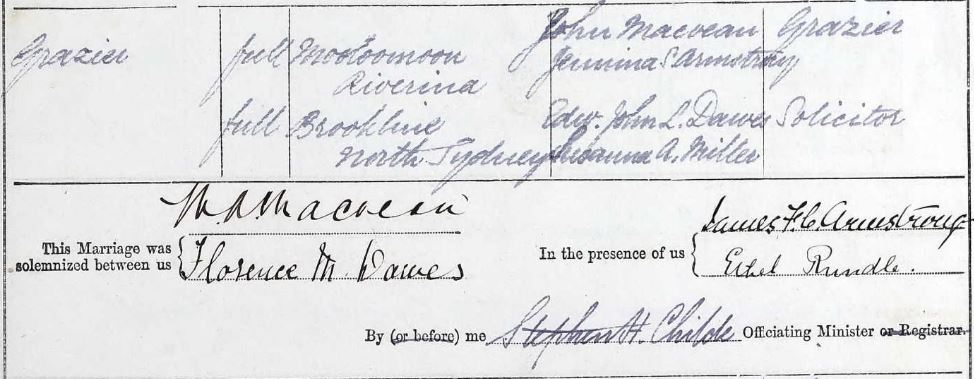 John Macvean Grazier
Grazier full Mooloomoon Jemima S Armstrong
Riverina
full Brookline Edw. John L. Dawes Solicitor
North Sydney Susanna A. Miller
Macvean
This Marriage was
solemnized between us Florence M Dawes
In the presence of us James F. C. Armstrong
Ethel Rundle.
By (or before) me Stephen H. Childe Officiating Minister or Registrar.